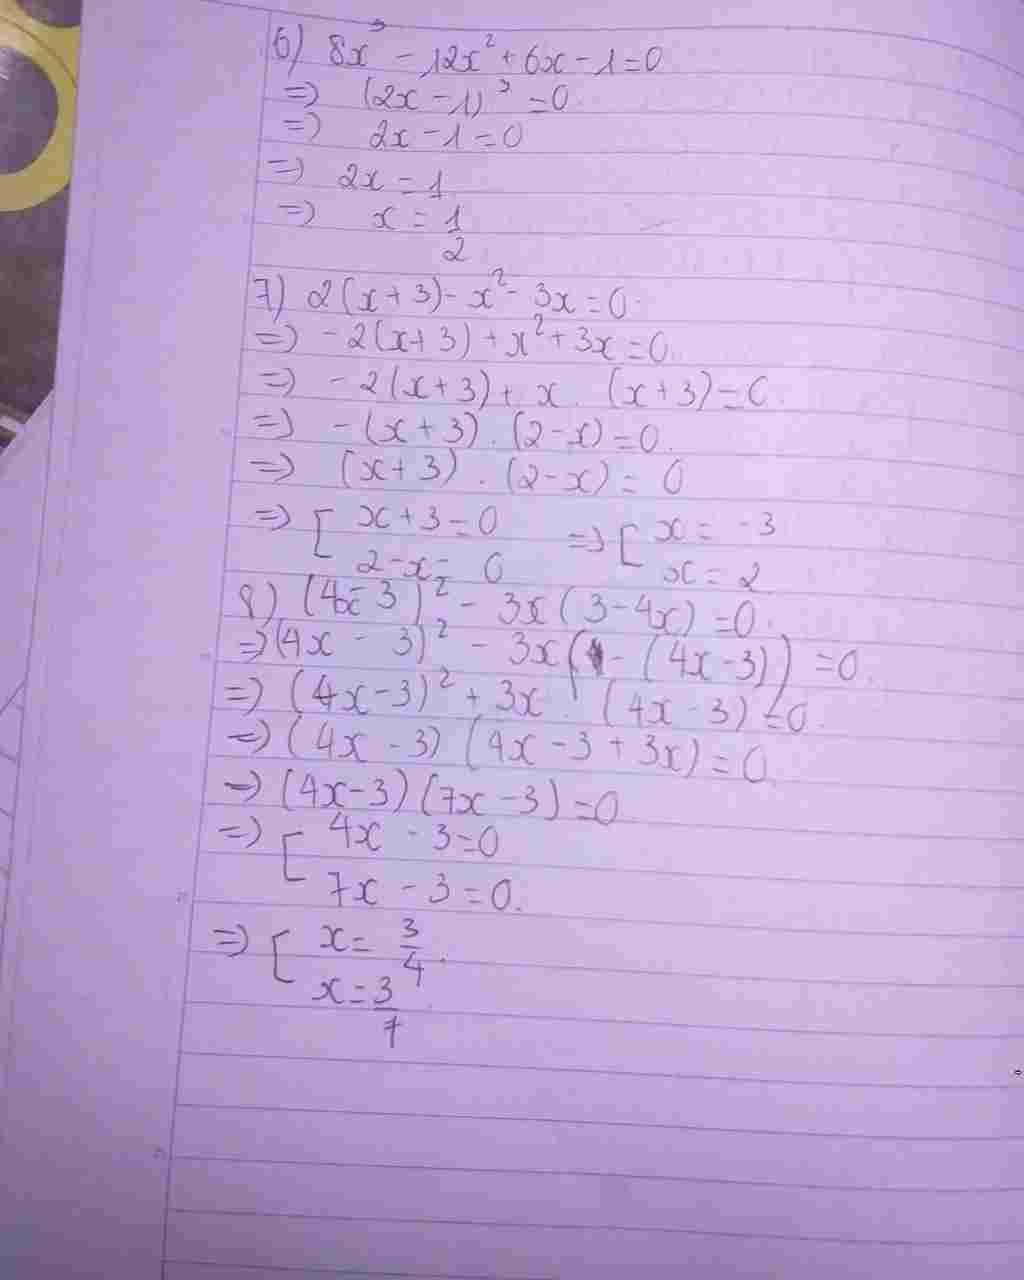 6) 8x³ - 12x² + 6x - 1 = 0
=> (2x - 1)³ = 0
=> 2x - 1 = 0
=> 2x = 1
=> x = 1/2
7) 2(x + 3) - x² - 3x = 0
=> -2(x + 3) + x² + 3x = 0
=> -2(x + 3) + x . (x + 3) = 0
=> -(x + 3) . (2 - x) = 0
=> (x + 3) . (2 - x) = 0
=> [ x + 3 = 0 => [ x = -3
2 - x = 0 x = 2
8) (4x - 3)² - 3x(3 - 4x) = 0
=> (4x - 3)² - 3x( - (4x - 3)) = 0
=> (4x - 3)² + 3x . (4x - 3) = 0
=> (4x - 3) (4x - 3 + 3x) = 0
=> (4x - 3) (7x - 3) = 0
=> [ 4x - 3 = 0
7x - 3 = 0
=> [ x = 3/4
x = 3/7